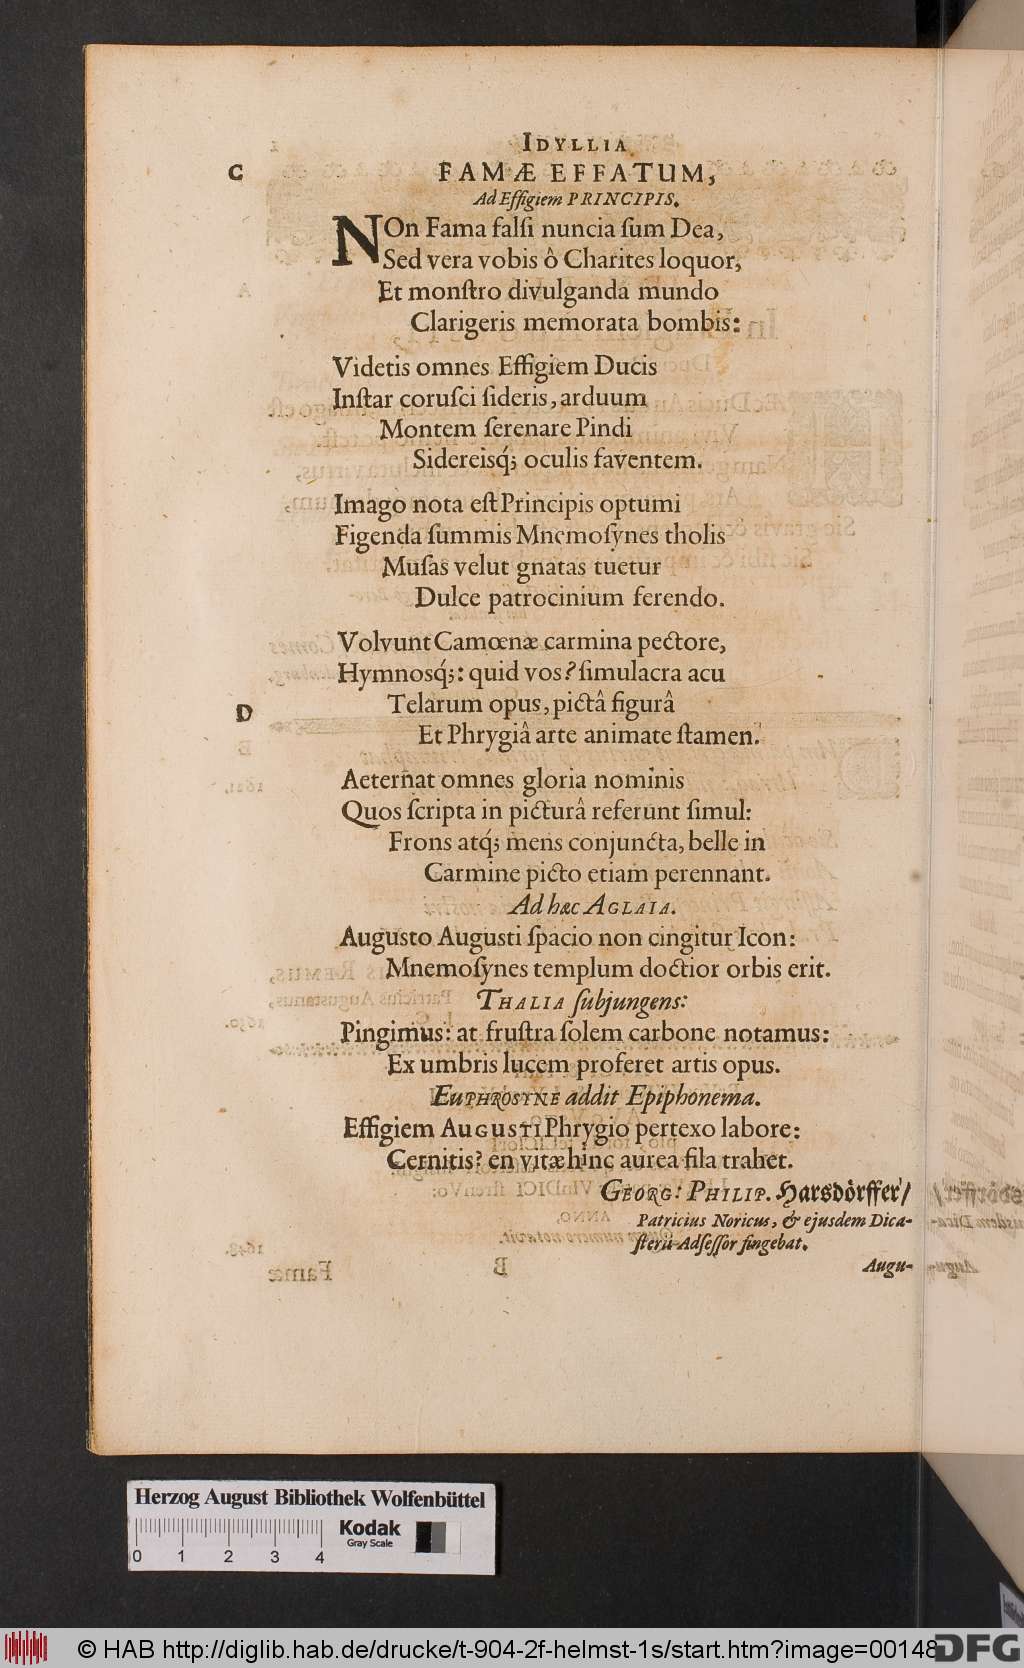 IDYLLIA
C
FAMÆ EFFATUM,
Ad Effigiem PRINCIPIS.
NOn Fama falſi nuncia ſum Dea,
Sed vera vobis ô Charites loquor,
Et monſtro divulganda mundo
Clarigeris memorata bombis:
Videtis omnes Effigiem Ducis
Inſtar coruſci ſideris, arduum
Montem ſerenare Pindi
Sidereisq́; oculis faventem.
Imago nota eſt Principis optumi
Figenda ſummis Mnemoſynes tholis
Muſas velut gnatas tuetur
Dulce patrocinium ferendo.
Volvunt Camœnæ carmina pectore,
Hymnosq́;: quid vos? ſimulacra acu
Telarum opus, pictâ figurâ
D
Et Phrygiâ arte animate ſtamen.
Aeternat omnes gloria nominis
Quos ſcripta in picturâ referunt ſimul:
Frons atq́; mens conjuncta, belle in
Carmine picto etiam perennant.
Ad hæc AGLAIA.
Auguſto Auguſti ſpacio non cingitur Icon:
Mnemoſynes templum doctior orbis erit.
THALIA ſubjungens:
Pingimus: at fruſtra ſolem carbone notamus:
Ex umbris lucem proferet artis opus.
EUPHROSYNE addit Epiphonema.
Effigiem AUGUSTI Phrygio pertexo labore:
Cernitis? en vitæ hinc aurea fila trahet.
GEORG: PHILIP. Harsdörffer/
Patricius Noricus, & ejusdem Dica-
ſterii Adſeſſor fingebat.
Augu-
Herzog August Bibliothek Wolfenbüttel
Kodak
Gray Scale
0 1 2 3 4
© HAB http://diglib.hab.de/drucke/t-904-2f-helmst-1s/start.htm?image=00148
DFG